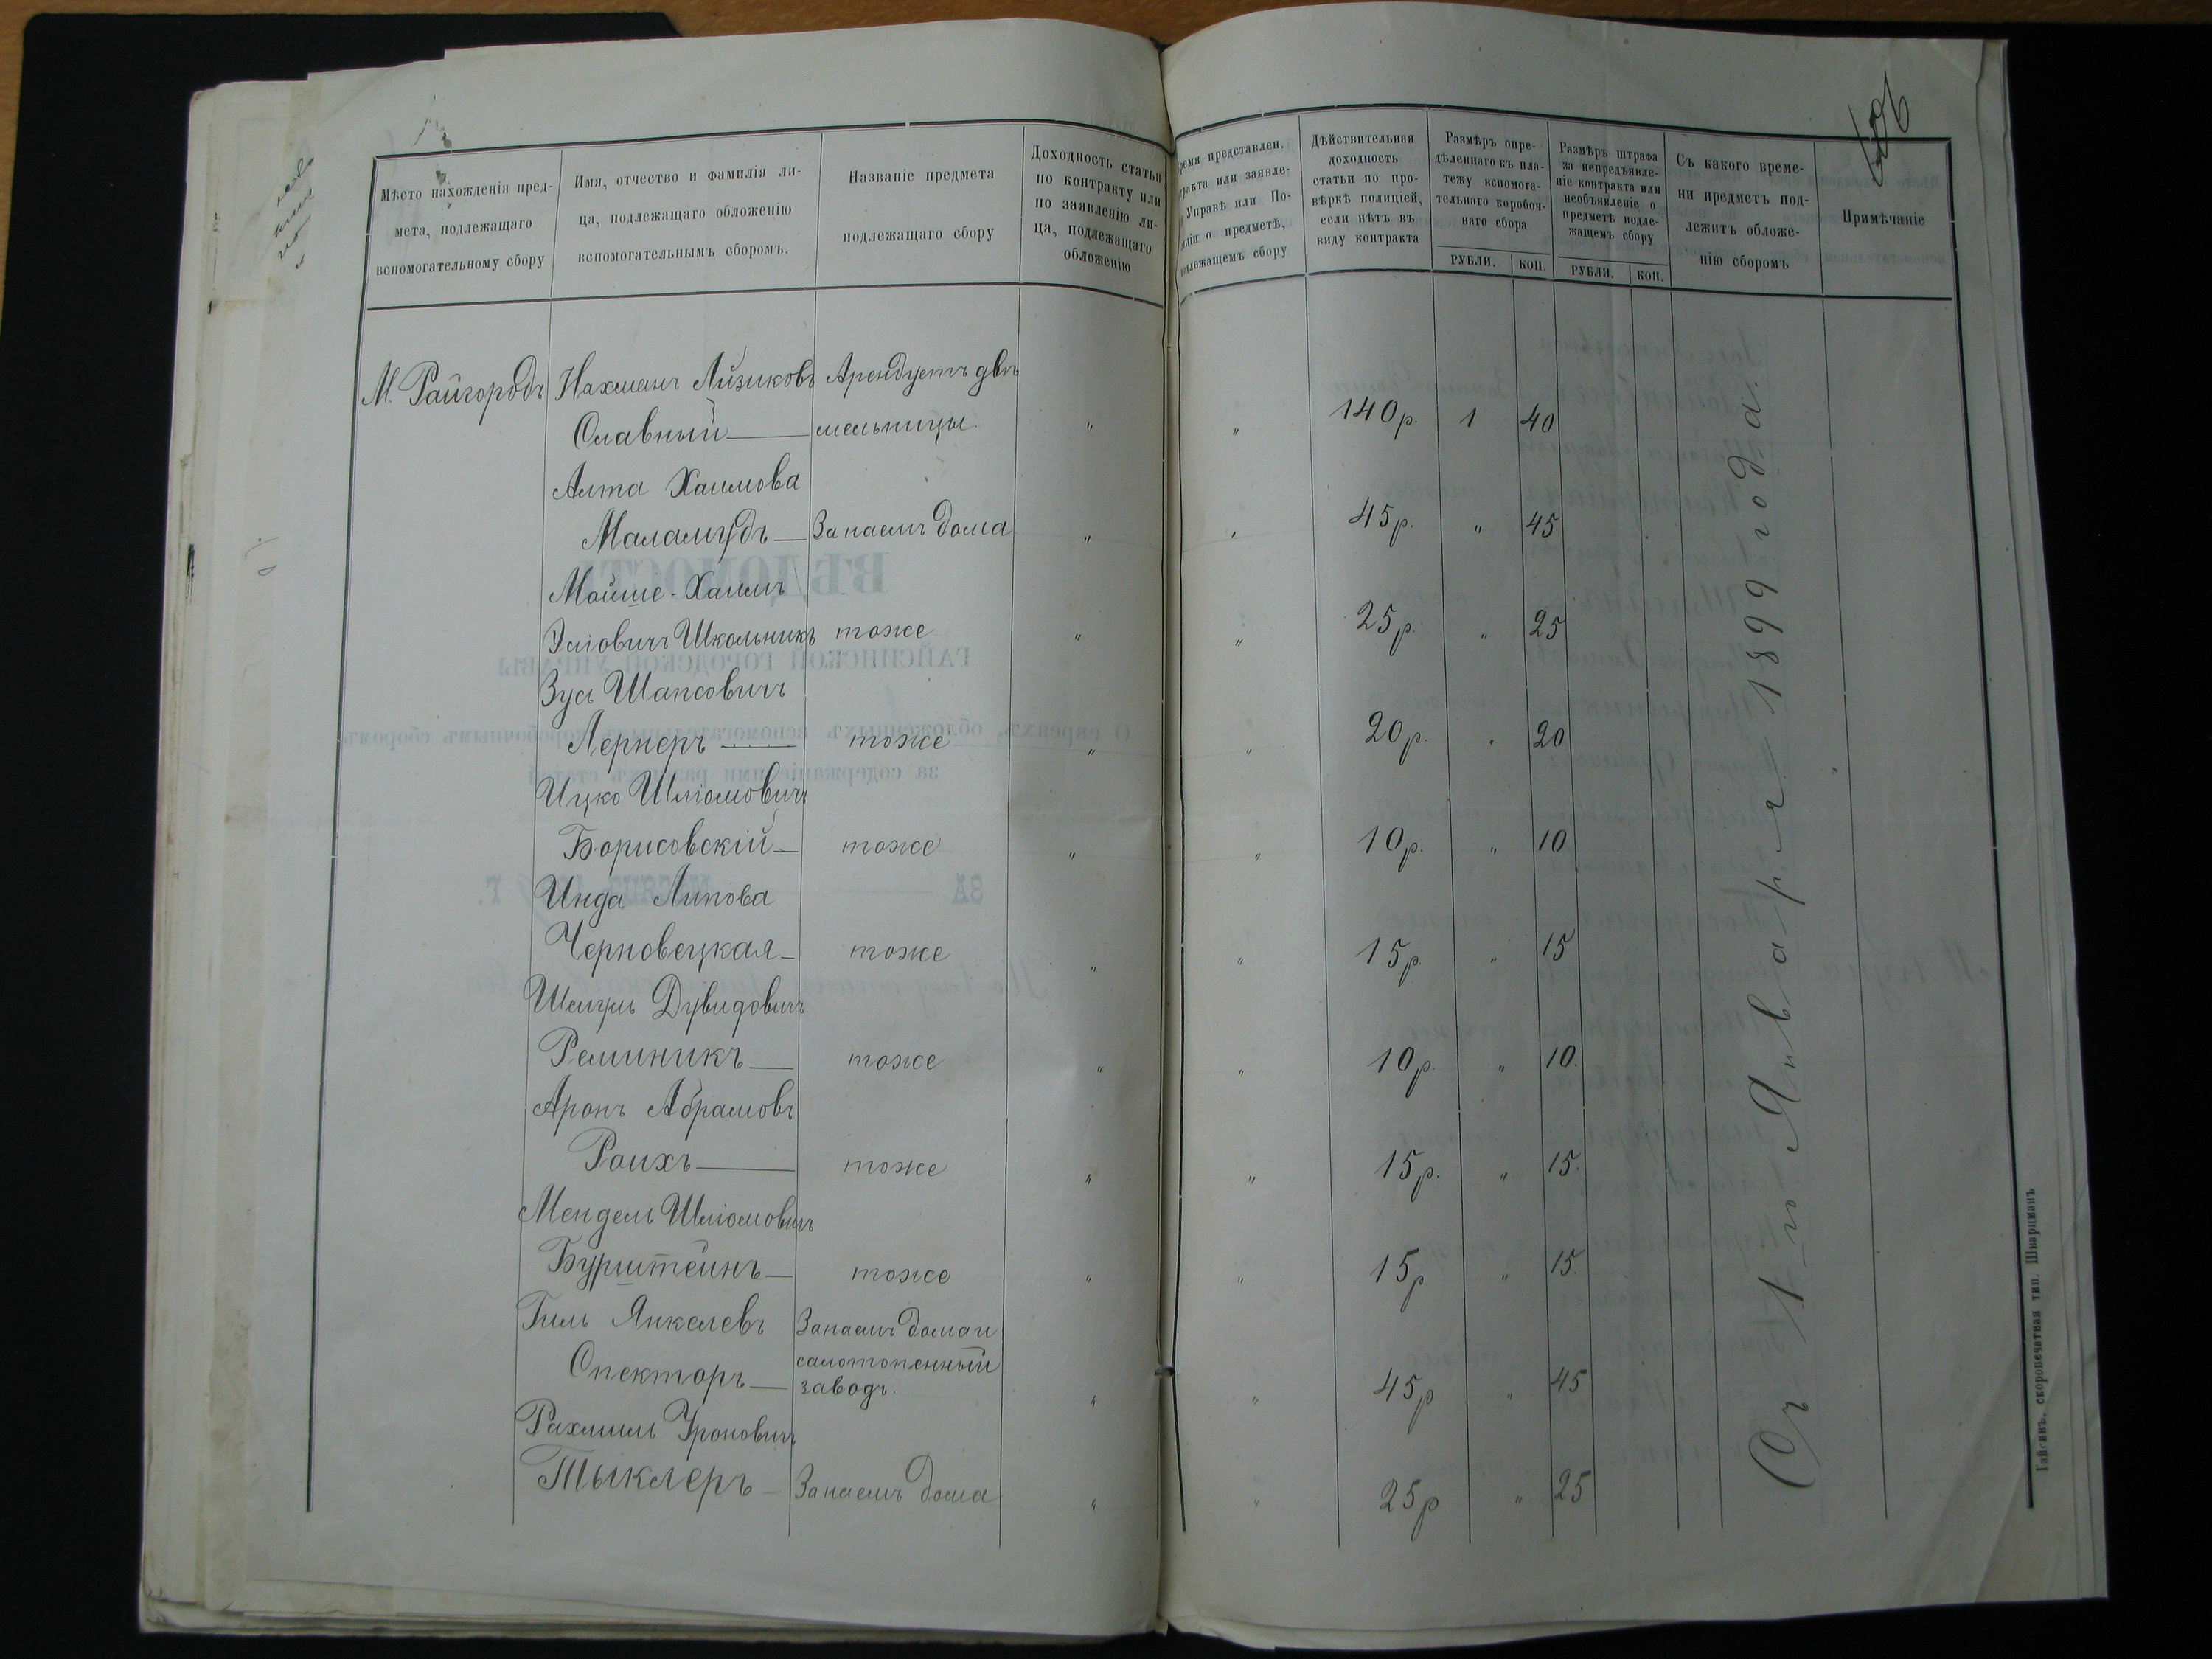 Мѣсто нахожденія пред-
мета, подлежащаго
вспомогательному сбору
Имя, отчество и фамилія ли-
ца, подлежащаго обложенію
вспомогательнымъ сборомъ.
Названіе предмета
подлежащаго сбору
Доходность статьи
по контракту или
по заявленію ли-
ца, подлежащаго
обложенію
представлен.
или заявле-
Управѣ или По-
о предметѣ,
сбору
Дѣйствительная
доходность
статьи по про-
вѣркѣ полиціей,
если нѣтъ въ
виду контракта
Размѣръ опре-
дѣленнаго къ пла-
тежу вспомога-
тельнаго коробоч-
наго сбора
РУБЛИ. КОП.
Размѣръ штрафа
за непредъявле-
ніе контракта или
необъявленіе о
предметѣ подле-
жащемъ сбору
РУБЛИ. КОП.
Съ какого време-
ни предметъ под-
лежитъ обложе-
нію сборомъ
Примѣчаніе
М. Райгородъ Нахманъ Айзиковъ Арендуетъ двѣ
Славный мельницы. " " 140р. 1 40
Алта Хаимова
Маламудъ За наемъ дома " " 45р. " 45
Мойше-Хаимъ
Школьникъ тоже " " 25р. " 25
Зусь Шапсовичъ
Лернеръ тоже " " 20р. " 20
Ицко Шліомовичъ
Борисовскій тоже " " 10р. " 10
Инда Липова
Черновецкая тоже " " 15р. " 15
Шмуль Дувидовичъ
Реминикъ тоже " " 10р. " 10.
Аронъ Абрамовъ
Раихъ тоже " " 15р. " 15.
Мендель Шліомовичъ
Бурштейнъ тоже " " 15р " 15.
Гиль Янкелевъ За наемъ дома и
Спекторъ салотопенный
заводъ. " " 45р " 45
Рахмиль
Тыклеръ За наемъ дома " " 25р " 25
Съ 1-го Января 1899 года.
Гайсинъ, скоропечатная тип. Шварцманъ